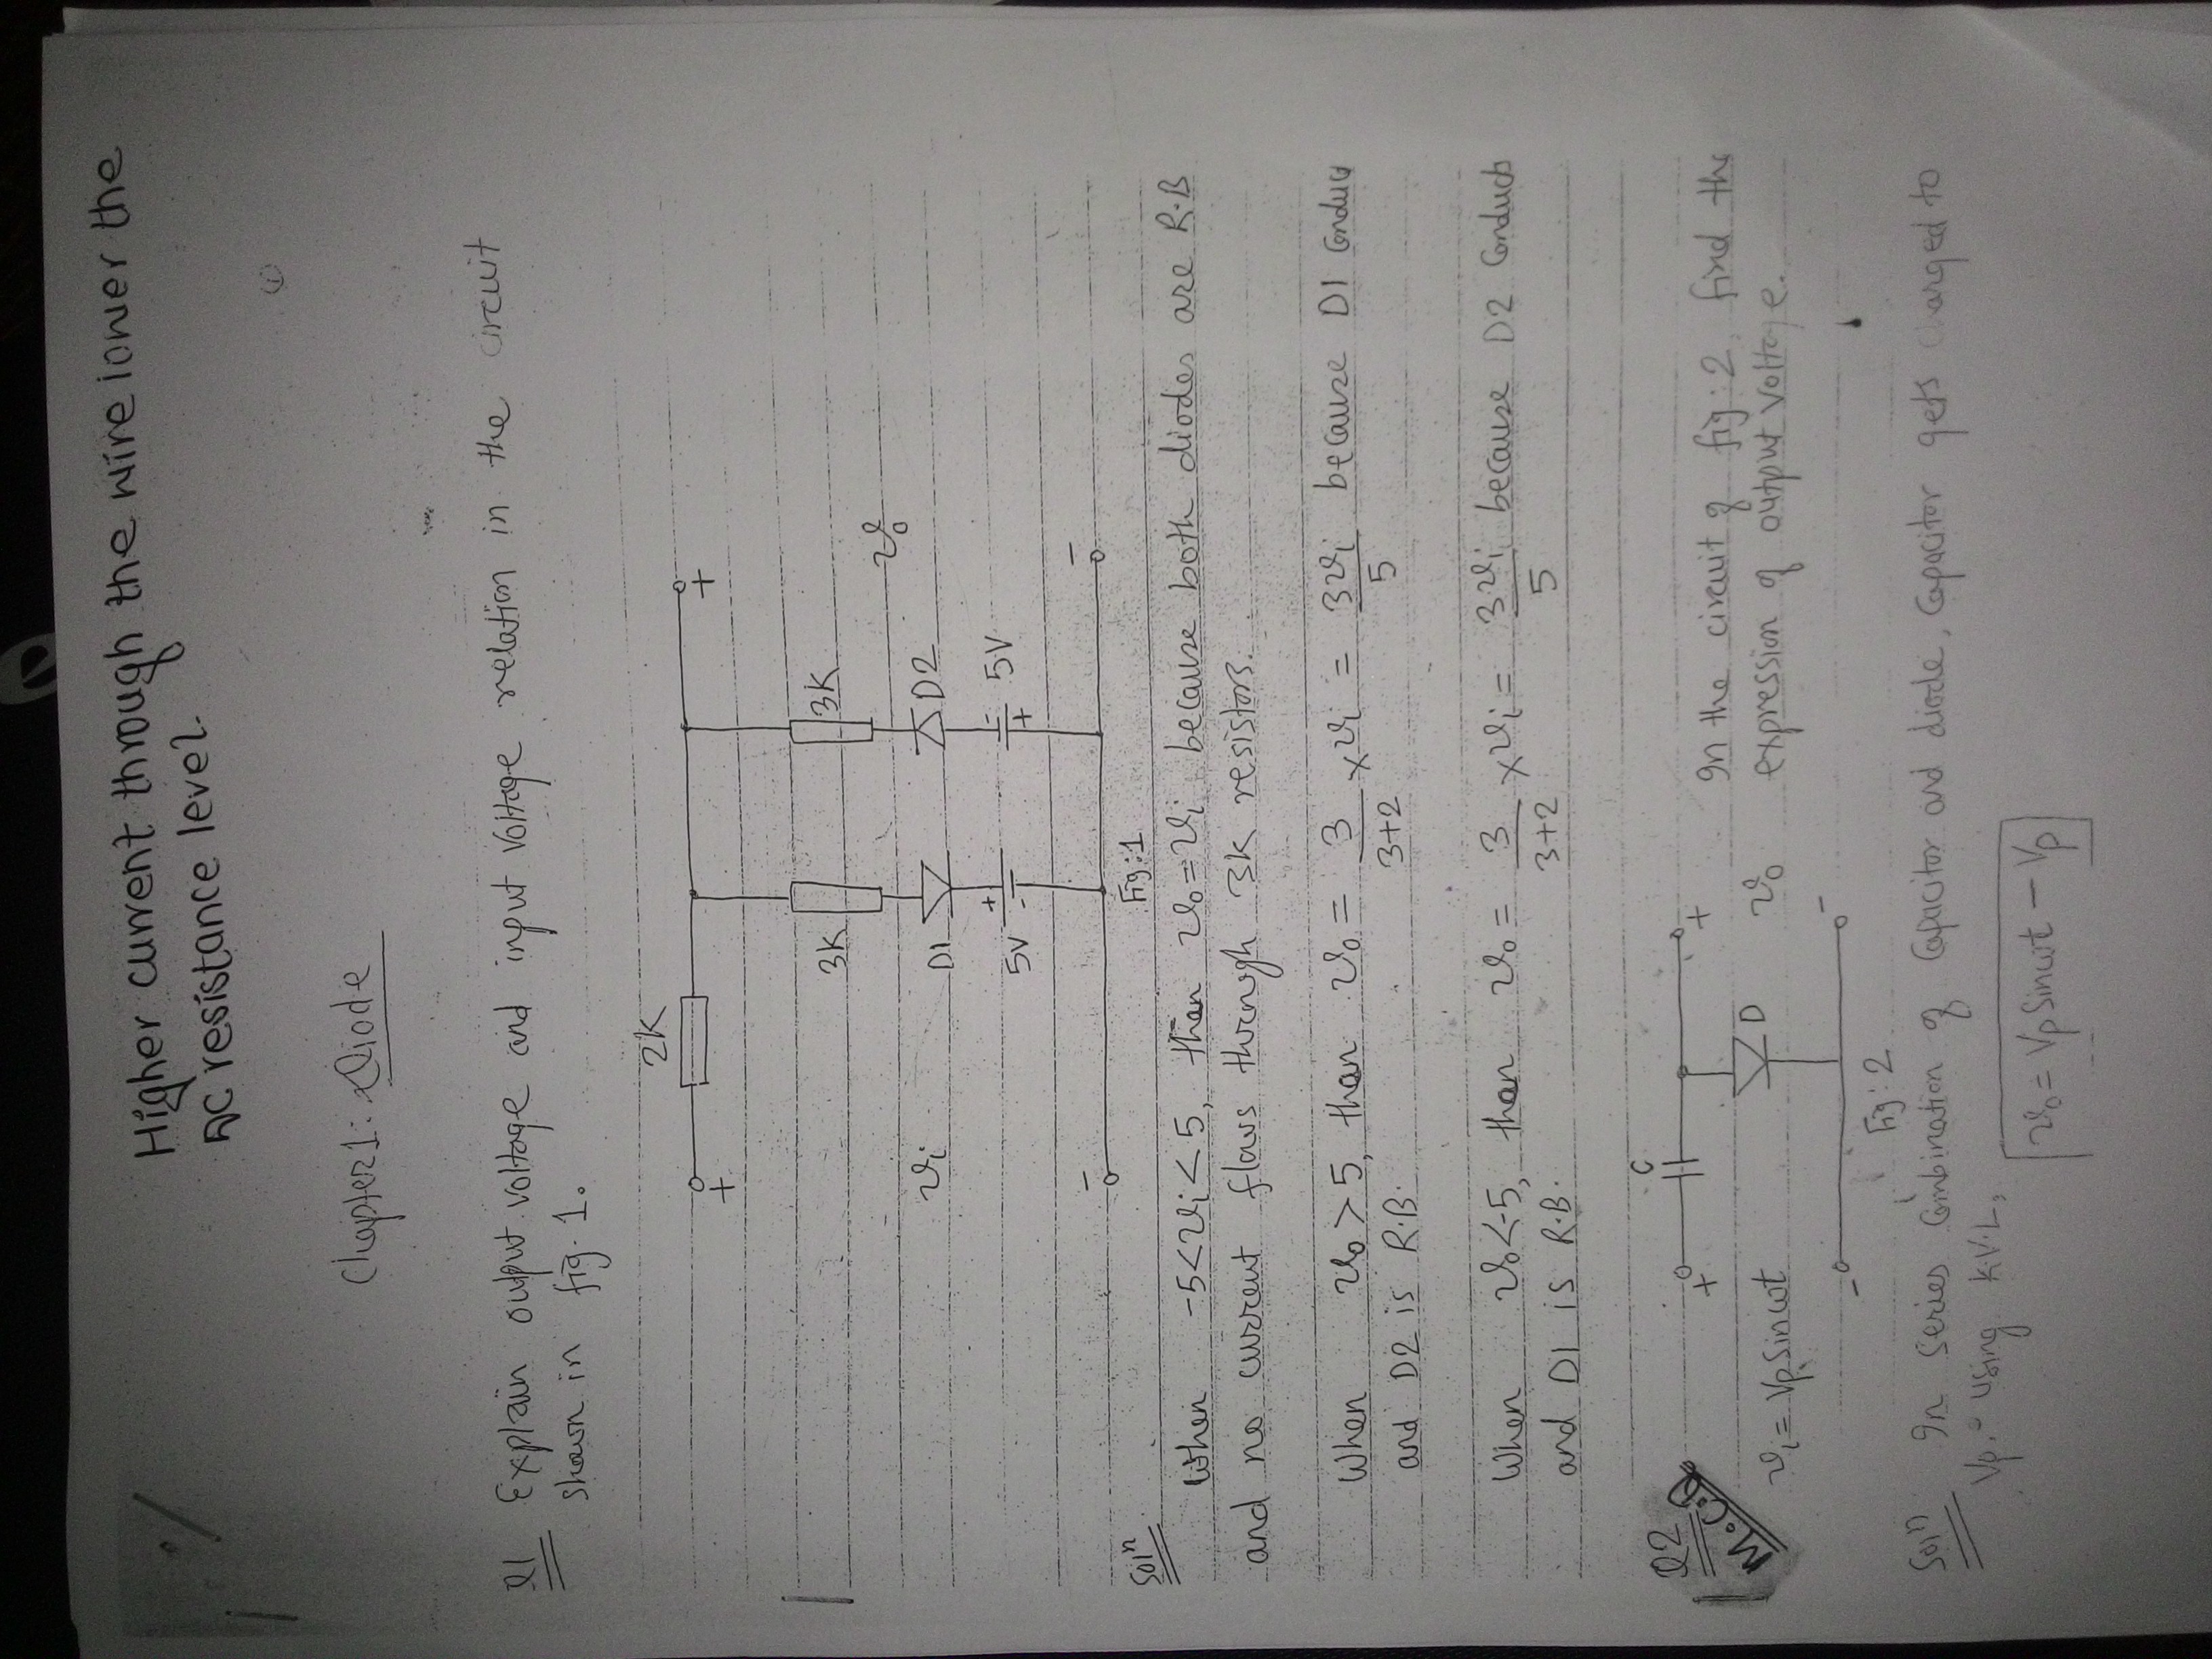 Higher current through the wire lower the
DC resistance level.
(1)
Chapter 1: Diode
Q1 Explain output voltage and input voltage relation in the circuit
shown in fig. 1.
2K
+
+
3K
3K
vi
vo
D1
D2
+
-
5V
-
5V
+
-
-
Fig:1
Soln
When -5<vi<5, than vo=vi because both diodes are R.B
and no current flows through 3K resistors.
When vo>5, than vo = 3/3+2 × vi = 3vi/5 because D1 Conduct
and D2 is R.B.
When vo<-5, than vo = 3/3+2 × vi = 3vi/5 because D2 Conducts
and D1 is R.B.
Q2
M.C.Q
C
+
+
D
vi = Vp Sinωt
vo
-
-
Fig:2
In the circuit of fig:2, find the
expression of output voltage.
Soln In Series Combination of Capacitor and diode, Capacitor gets charged to
Vp. Using K.V.L,
vo = Vp Sinωt - Vp